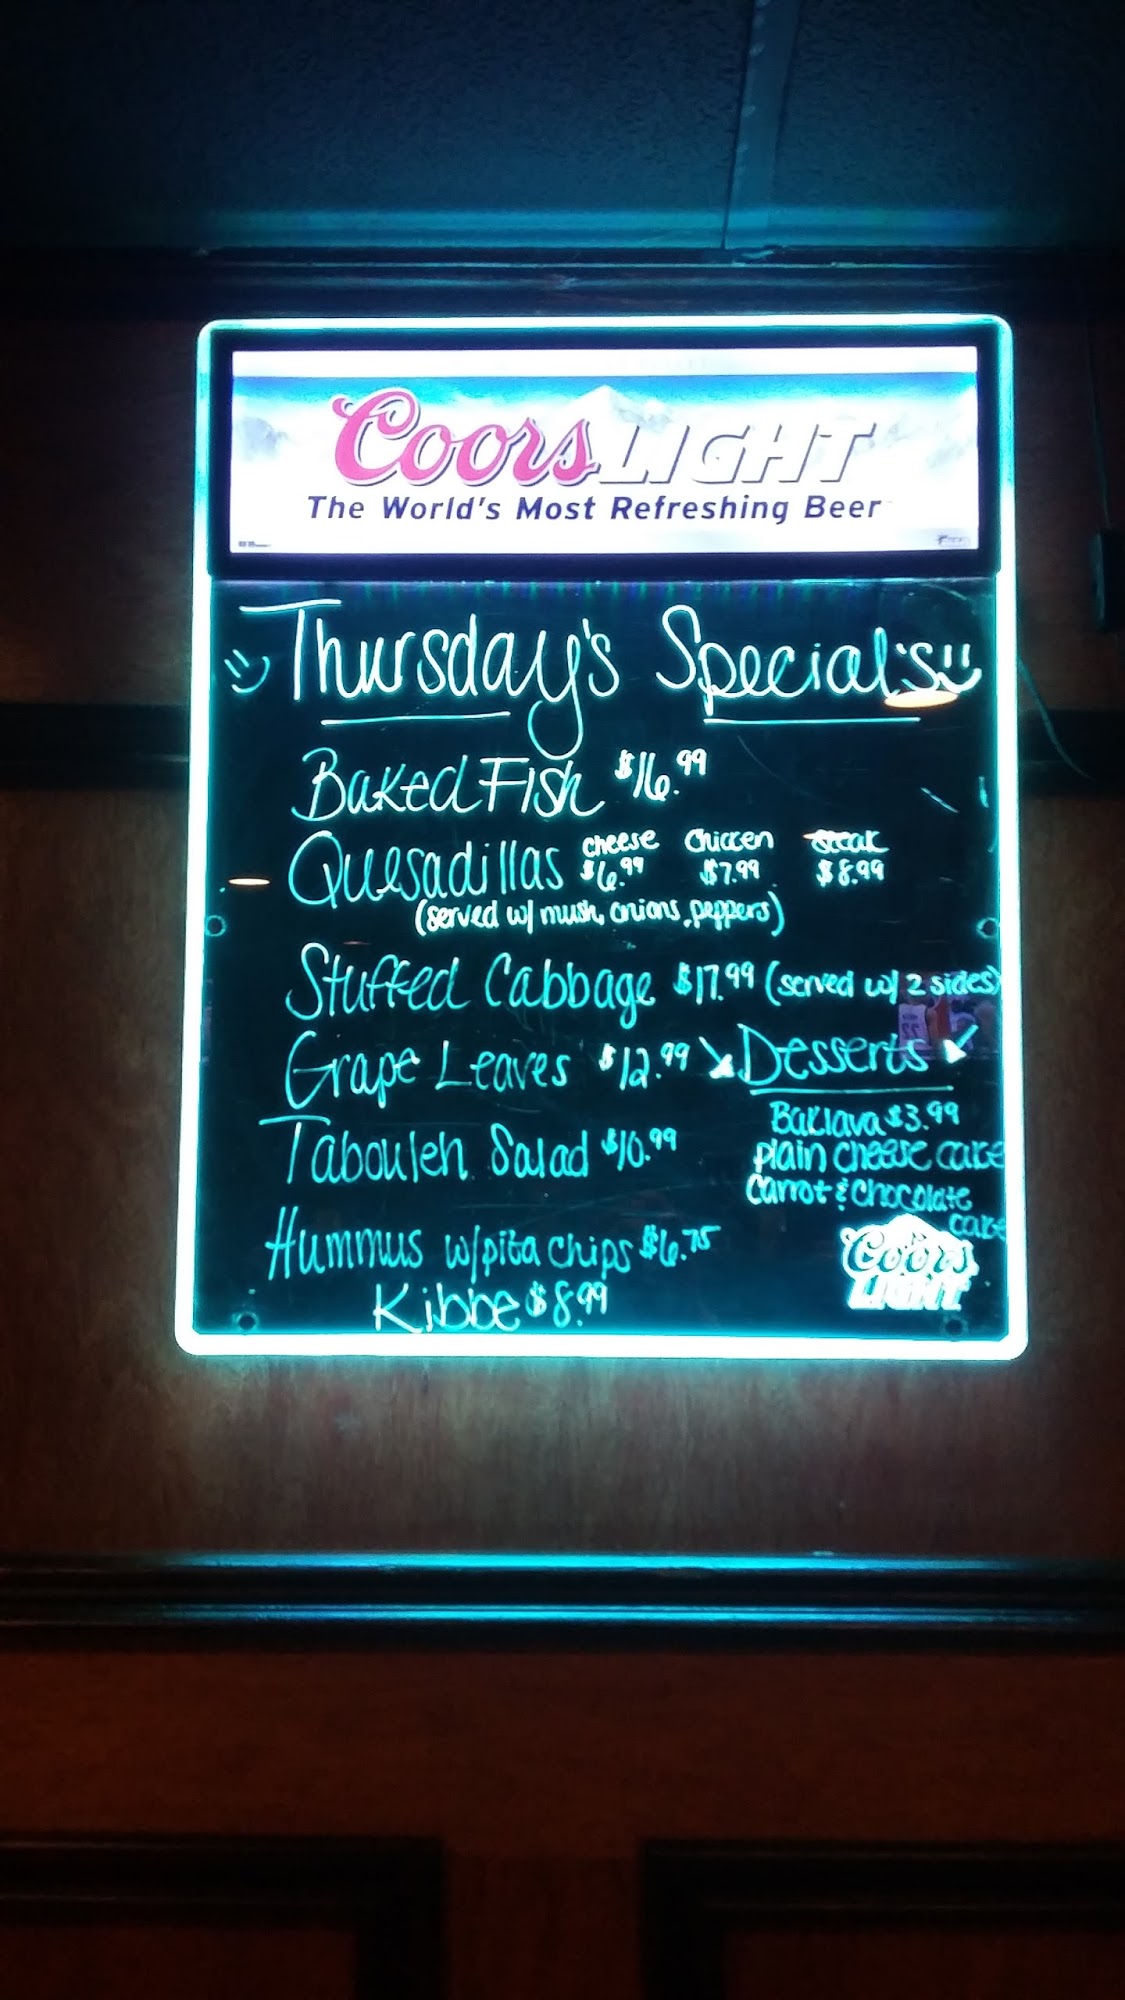 Coors LIGHT
The World's Most Refreshing Beer
Thursday's Special's
Baked Fish $16.99
Quesadillas cheese $6.99 Chicken $7.99 Steak $8.99
(served w/ mush, onions, peppers)
Stuffed Cabbage $17.99 (served w/ 2 sides)
Grape Leaves $12.99
Tabouleh Salad $10.99
Hummus w/ pita chips $6.75
Kibbe $8.99
Desserts
Baklava $3.99
plain cheese cake
Carrot & Chocolate
cake
Coors
LIGHT